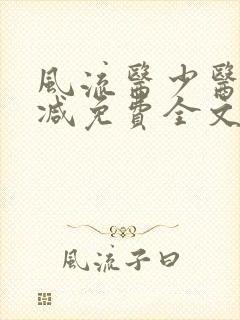 風流醫少醫
減免費全文
風流子曰